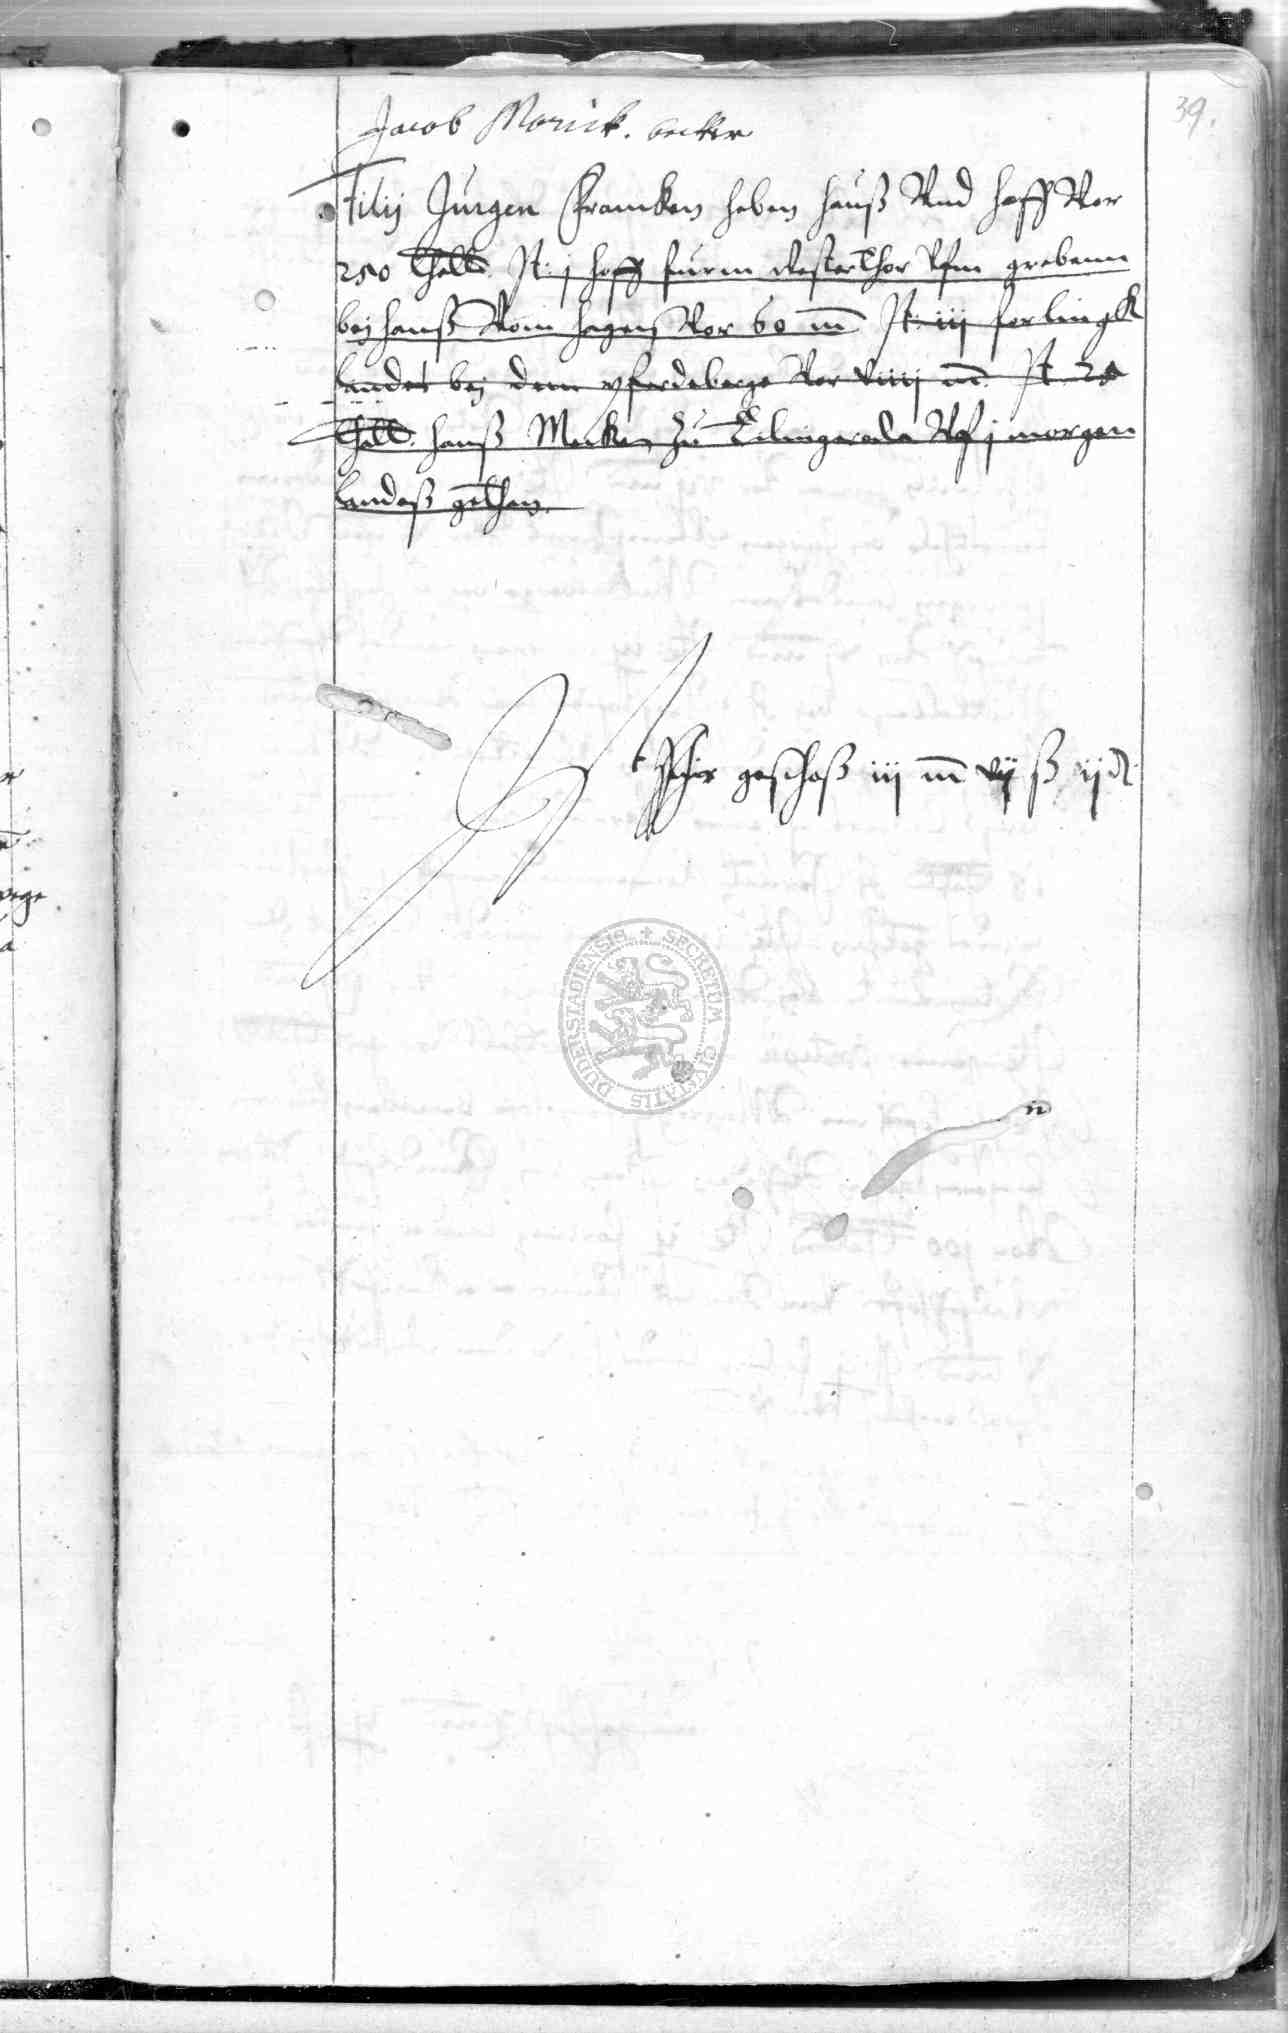 39.
Jacob Morick. becker
Filij Jurgen Francken haben hauß Vnd hoff Vor
250 Thall. It. j hoff furm WesterThor Vfm grabenn
bej hanß Vom hagen Vor 60 m It. iij forlingk
landes bej dem pferdeberge Vor viiij m. It 20
Thall. hanß Mecken zu Tilingerode Vf j morgen
landeß gethan.
Ihr geschoß iij m vij ß ij d.
SECRETUM CIVITATIS DUDERSTADIENSIS